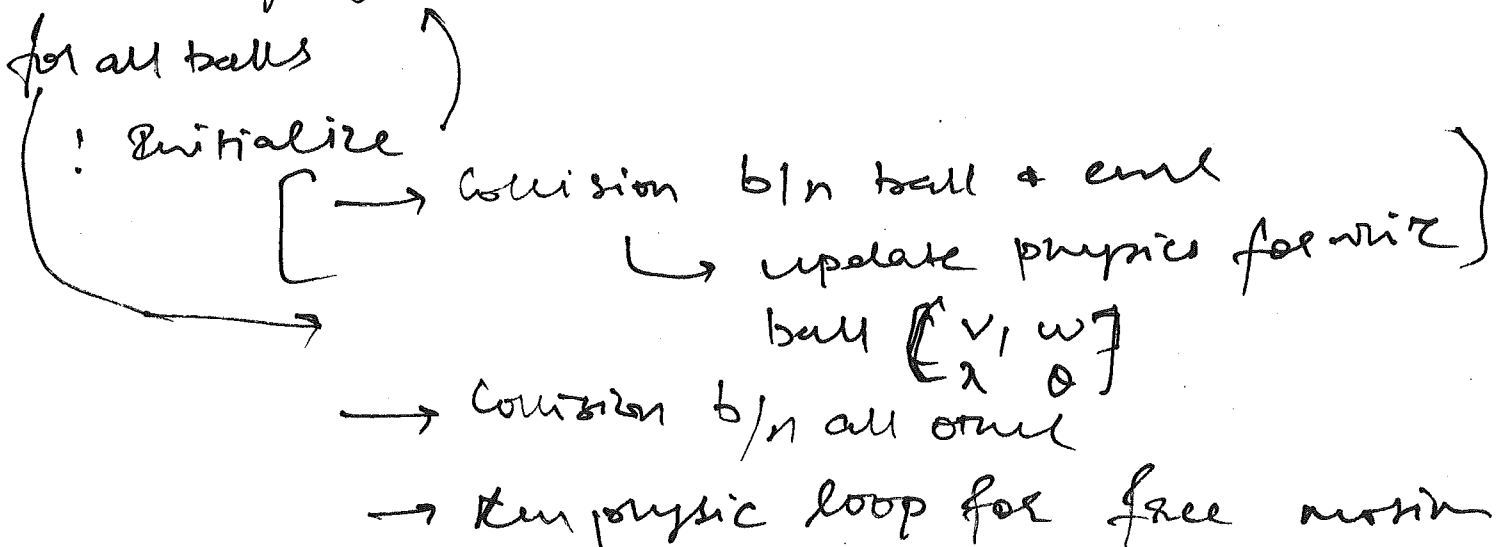 for all balls
! Initialize
→ Collision b/n ball &
↳ update physics for
ball [v, ω
θ]
→ Collision b/n all
→ Run physic loop for free motion